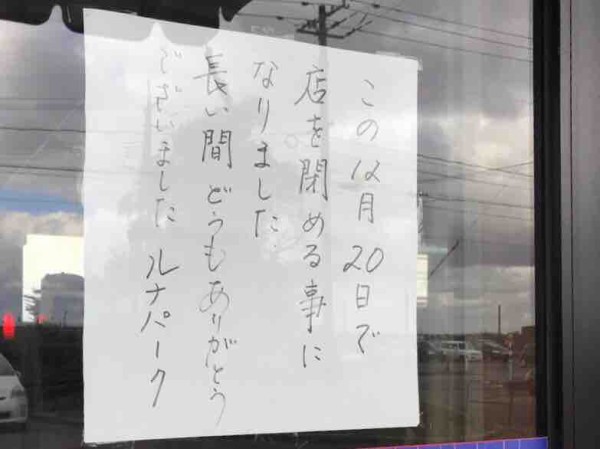 この12月20日で
店を閉める事に
なりました
長い間どうもありがとう
ございました ルナパーク